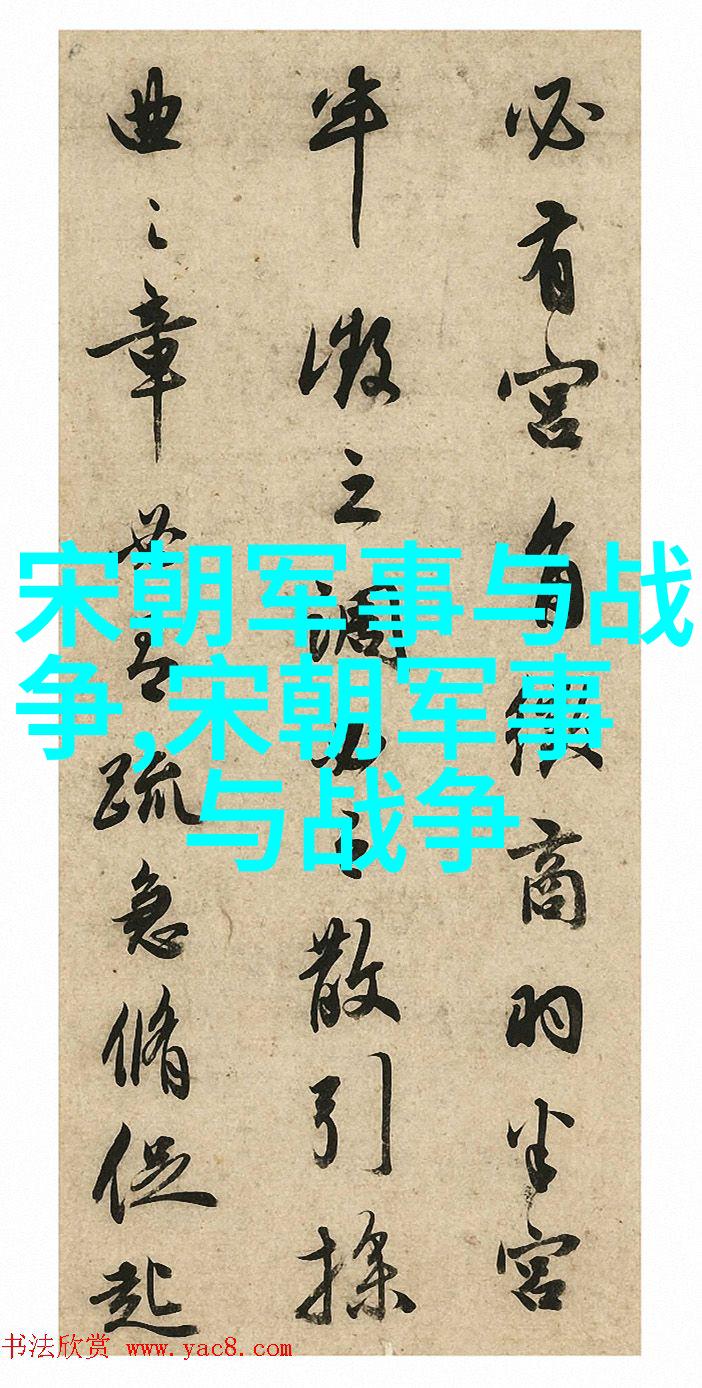 必有宫角徵商羽半宫
半徵之调
散引操
曲之章
疏急脩促起
宋朝军事与战
争,宋朝军事
与战争
书法欣赏 www.yac8.com